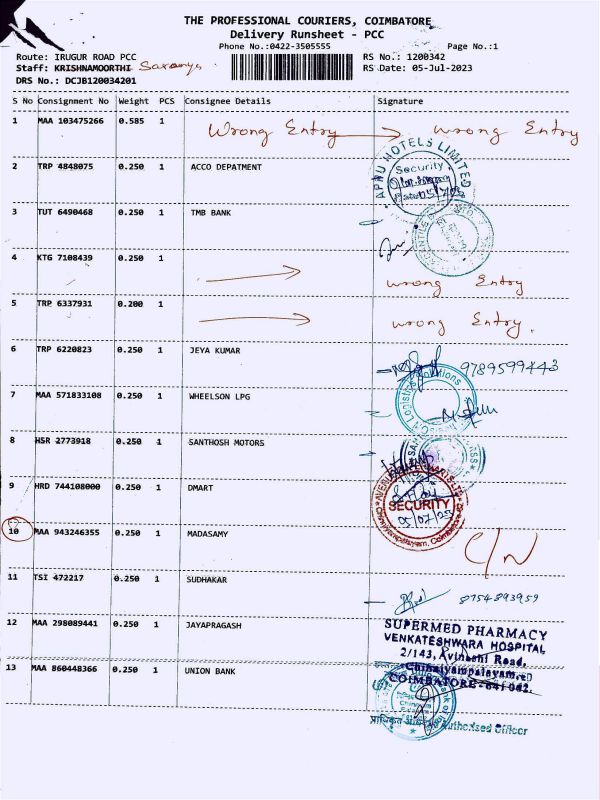 THE PROFESSIONAL COURIERS, COIMBATORE
Delivery Runsheet - PCC
Phone No.:0422-3505555 Page No.:1
Route: IRUGUR ROAD PCC RS No.: 1200342
Staff: KRISHNAMOORTHI RS Date: 05-Jul-2023
DRS No.: DCJB120034201
S No Consignment No Weight PCS Consignee Details Signature
1 MAA 103475266 0.585 1 Wrong Entry wrong Entry
2 TRP 4848075 0.250 1 ACCO DEPATMENT
APHU HOTELS LIMITED
Security
3 TUT 6490468 0.250 1 TMB BANK
4 KTG 7108439 0.250 1 wrong Entry
5 TRP 6337931 0.200 1 wrong Entry.
6 TRP 6220823 0.250 1 JEYA KUMAR 9789599443
7 MAA 571833108 0.250 1 WHEELSON LPG
Logistics Solutions
8 HSR 2773918 0.250 1 SANTHOSH MOTORS
9 HRD 744108000 0.250 1 DMART
SECURITY
05/07/23
Chinniyampalayam, Coimbatore
10 MAA 943246355 0.250 1 MADASAMY C/N
11 TSI 472217 0.250 1 SUDHAKAR 8754893959
12 MAA 298089441 0.250 1 JAYAPRAGASH
SUPERMED PHARMACY
VENKATESHWARA HOSPITAL
2/143, Avinashi Road,
Chinniyampalayam,
COIMBATORE - 641 062.
13 MAA 860448366 0.250 1 UNION BANK
Authorised Officer